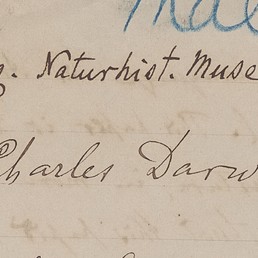 Naturhist. Muse
Charles Darw